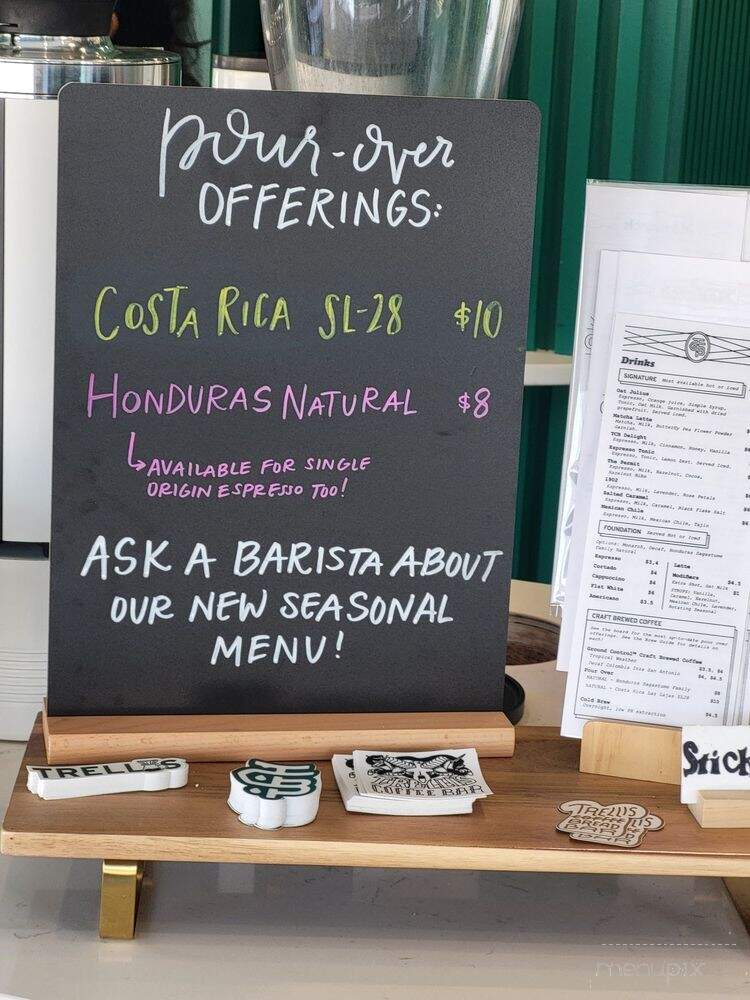 pour-over
OFFERINGS:
COSTA RICA SL-28 $10
HONDURAS NATURAL $8
AVAILABLE FOR SINGLE
ORIGIN ESPRESSO TOO!
ASK A BARISTA ABOUT
OUR NEW SEASONAL
MENU!
Drinks
SIGNATURE Most available hot or iced
Oat Julius
Espresso, Orange juice, Simple Syrup,
Tonic, Oat Milk. Garnished with dried
grapefruit. Served iced.
Matcha Latte
Matcha, Milk, Butterfly Pea Flower Powder
Garnish.
TCB Delight
Espresso, Milk, Cinnamon, Honey, Vanilla
Espresso Tonic
Espresso, Tonic, Lemon Zest. Served Iced.
The Permit
Espresso, Milk, Hazelnut, Cocoa,
Hazelnut Bits
1902
Espresso, Milk, Lavender, Rose Petals
Salted Caramel
Espresso, Milk, Caramel, Black Flake Salt
Mexican Chile
Espresso, Milk, Mexican Chile, Tajin
FOUNDATION Served Hot or Iced
Options: Monarch, Decaf, Honduras Sagastume
Family Natural
Espresso $3,4
Cortado $4
Cappuccino $4
Flat White $4
Americano $3.5
Latte $4.5
Modifiers
Extra Shot, Oat Milk $1
SYRUPS: Vanilla,
Caramel, Hazelnut,
Mexican Chile, Lavender,
Rotating Seasonal
CRAFT BREWED COFFEE
See the board for the most up-to-date pour over
offerings. See the Brew Guide for details on
each!
Ground Control™ Craft Brewed Coffee
Tropical Weather $3.5, $4
Decaf Colombia Inza San Antonio $4, $4.5
Pour Over
NATURAL - Honduras Sagastume Family $8
NATURAL - Costa Rica Las Lajas SL28 $10
Cold Brew
Overnight, low PH extraction $4.5
TRELLIS
COFFEE BAR
TRELLIS
BREAD
BAR
Stick
menupix